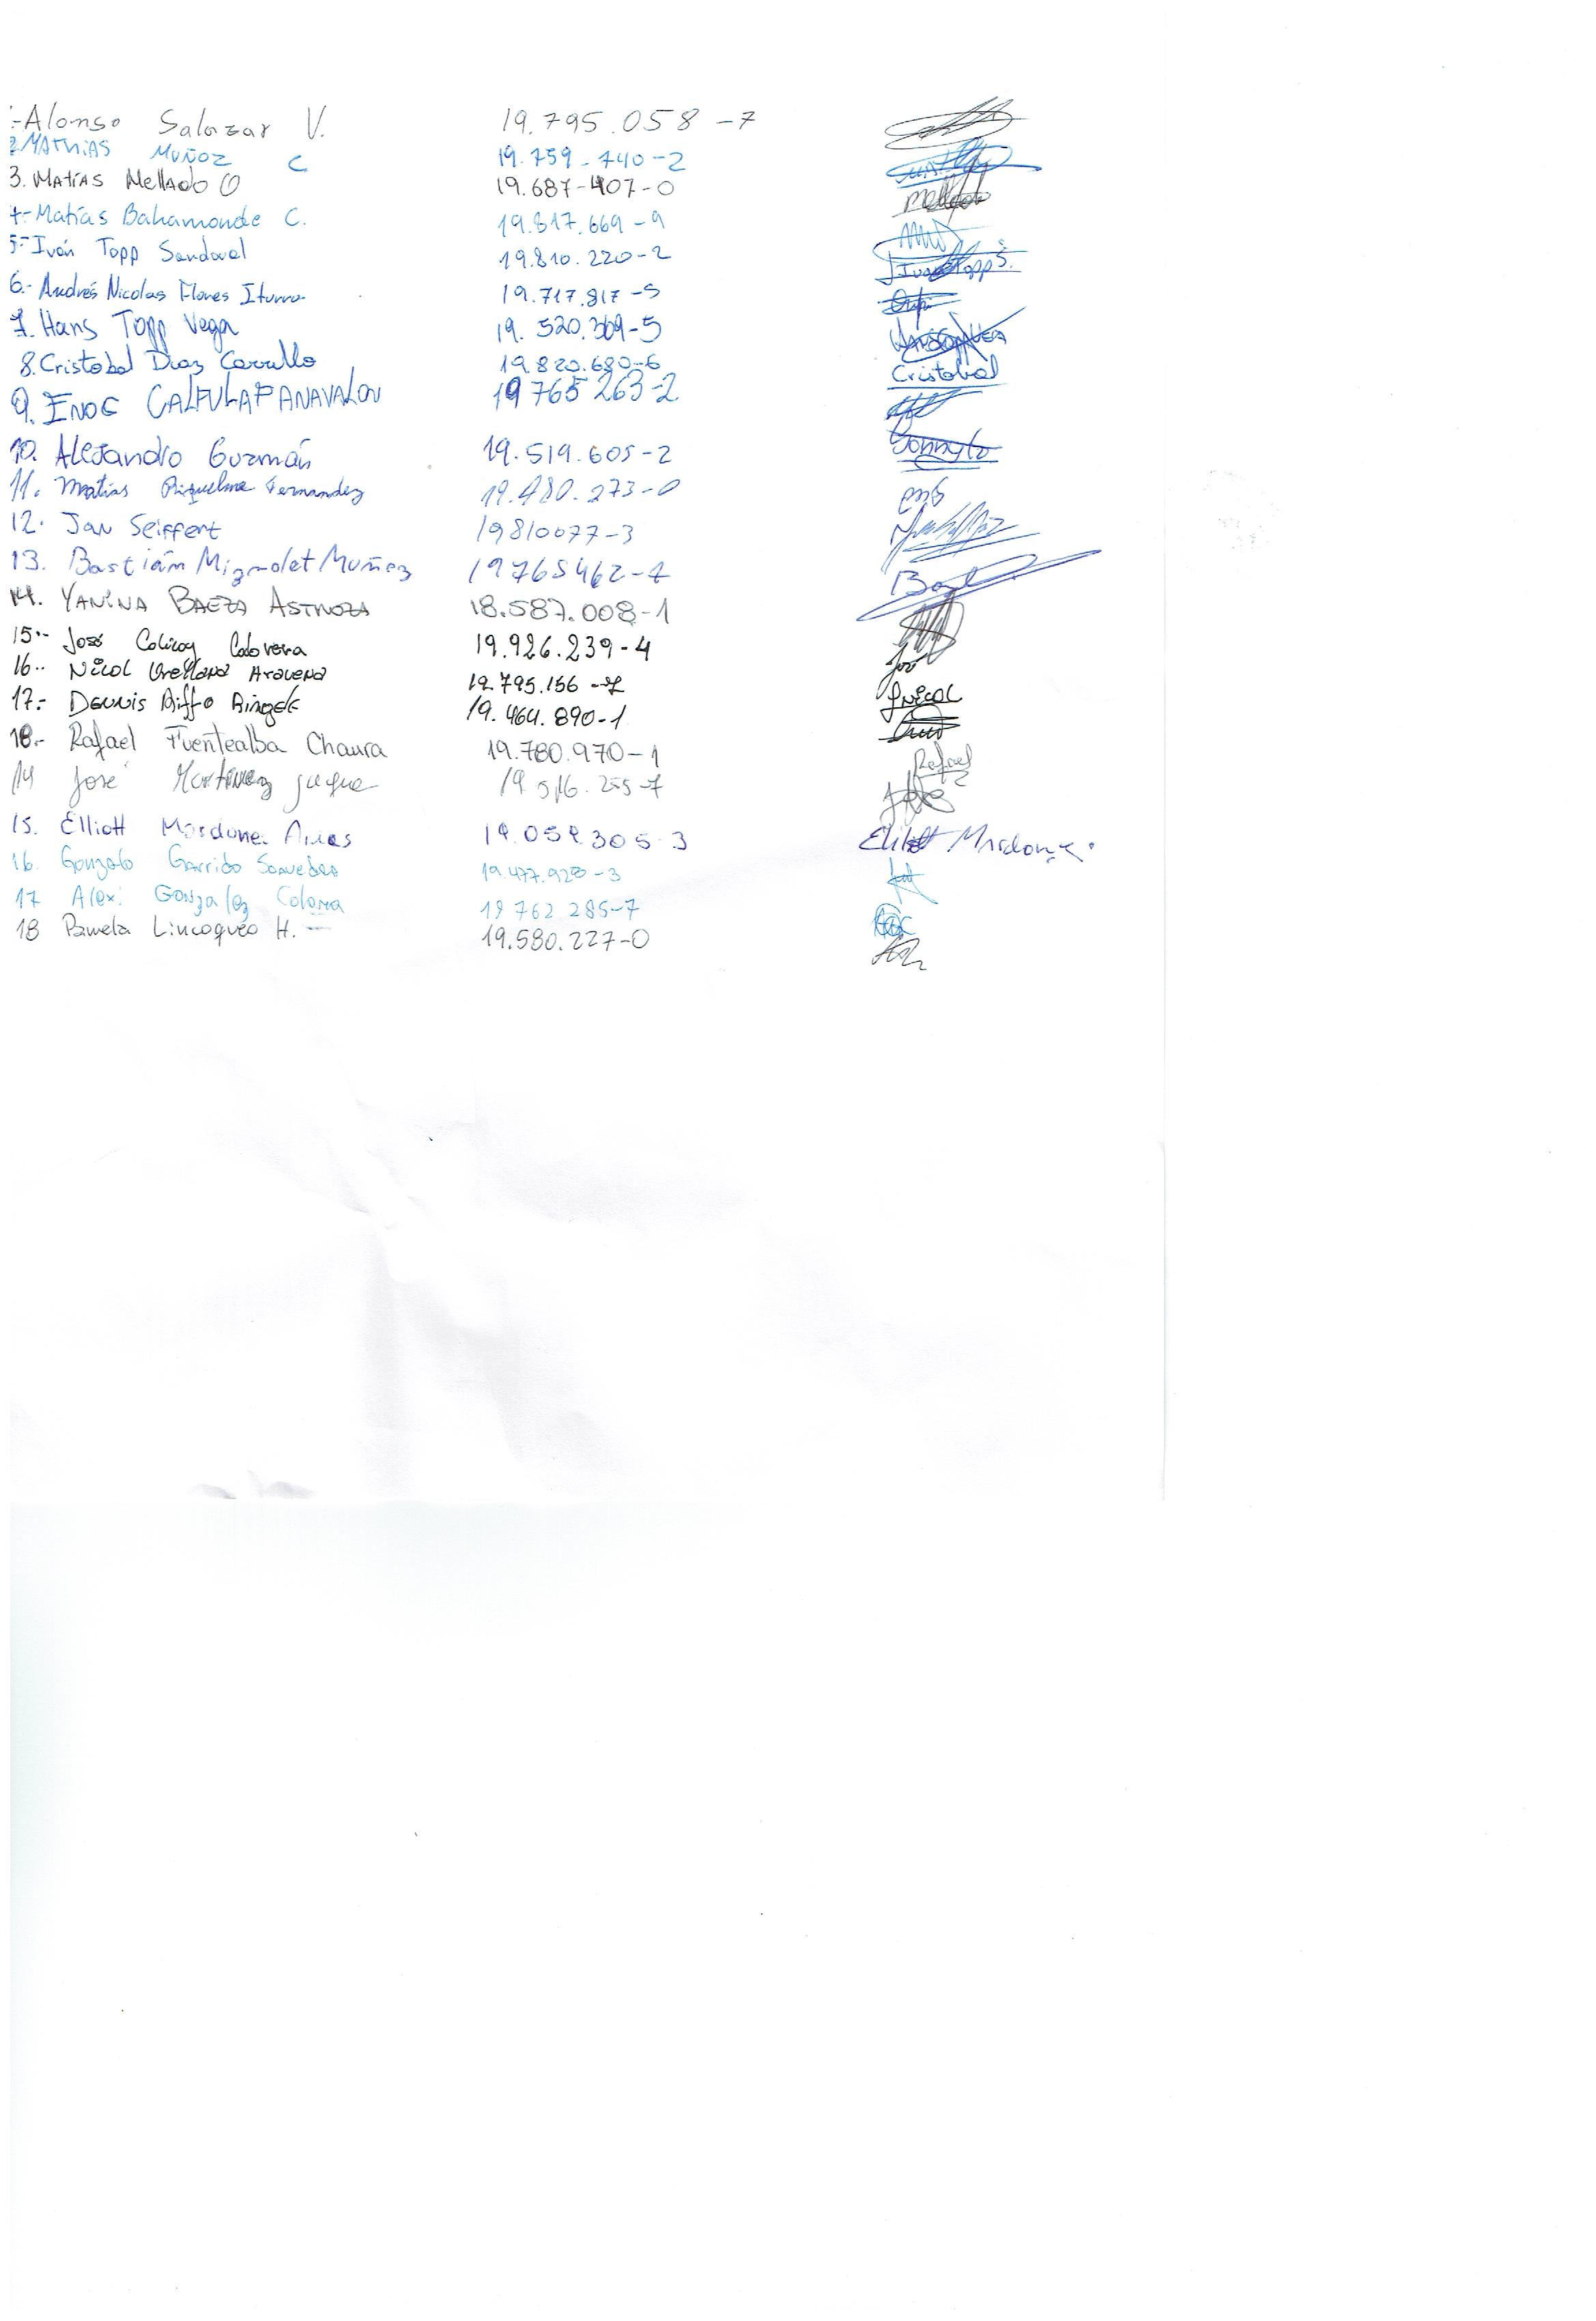 .-Alonso Salazar V. 19.795.058-7
2 MATHIAS MUÑOZ C 19.759-740-2
3. MATÍAS MellAdo O 19.687-407-0 Mellado
4.-Matías Bahamonde C. 19.817.669-9
5.-Iván Topp Sandoval 19.810.220-2 Ivan Topp S.
6.- Andrés Nicolas Flores Iturra 19.717.817-5
7. Hans Topp Vega 19.520.369-5
8. Cristobal Diaz Carrillo 19.820.680-6 Cristobal
9. ENOC CALFULAF PANAVALOU 19 765 263-2
10. Alejandro Guzmán 19.519.605-2
11. Matías Riquelme Fernandez 19.480.273-0
12. Jan Seiffert 19810077-3
13. Bastián Mignolet Muñoz 19765462-7
14. YANINA BAEZA ASTROZA 18.587.008-1
15.- José Colicoy Calavera 19.926.239-4 José
16.. Nicol Orellana Aravena 19.795.156-7 Nicol
17.- Dennis Riffo 19.464.890-1
18.- Rafael Fuentealba Chaura 19.780.970-1 Rafael
14 José Martinez 19.516.255-7
15. Elliott Mardones Arias 19.059.305-3 Elliott Mardones.
16. Gonzalo Garrido Saavedra 19.477.928-3
17 Alex. Gonzalez Coloma 19 762 285-7
18 Pamela Lincoqueo H. 19.580.227-0